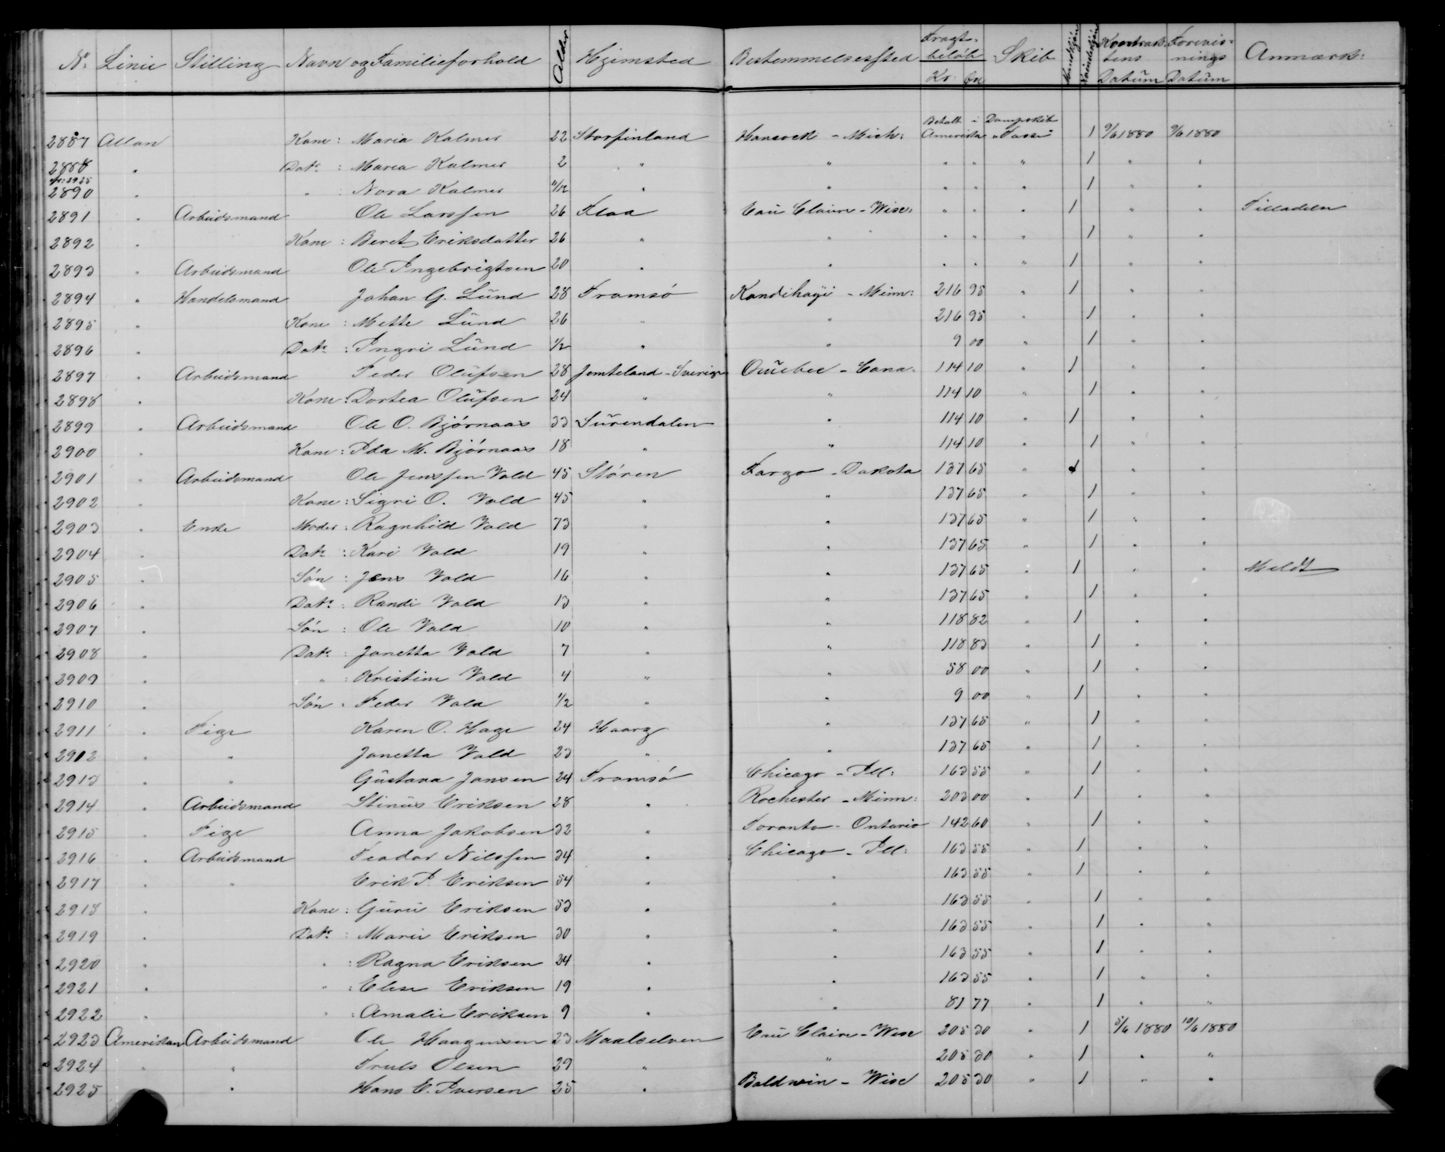 No Linie Stilling Navn og Familieforhold Alder Hjemsted Bestemmelsessted Fragtbeløb Kr: Skib Mandkjøn Kvindekjøn Kontraktens Datum Forevisnings Datum Anmærk:
2887 Allan Kone: Maria Kalmer 22 Storfinland Hancock - Mich: Betalt i Amerika Dampskib Tasso 1 9/6 1880 9/6 1880
2888 " Dat: : Maria Kalmer 2 " " " " " 1 " "
2890 " " : Nora Kalmer " " " " " 1 " "
2891 " Arbeidsmand Ole Larssen 26 Flaa Eau Claire - Wisc: " " " 1 " "
2892 " Kone : Beret Eriksdatter 26 " " " " " 1 " "
2893 " Arbeidsmand Ole Ingebrigtsen 20 " " " " " 1 " "
2894 " Handelsmand Johan G. Lund 28 Tromsø Kandihayi - Minn: 216 95 " 1 " "
2895 " Kone : Mette Lund 26 " " 216 95 " 1 " "
2896 " Dat: : Ingri Lund 1/2 " " 9 00 " 1 " "
2897 " Arbeidsmand Peder Olufsen 28 Jemteland - Sverige Quebec - Cana: 114 10 " 1 " "
2898 " Kone : Dortea Olufsen 24 " " 114 10 " 1 " "
2899 " Arbeidsmand Ole O. Bjørnaas 33 Surendalen " 114 10 " 1 " "
2900 " Kone : Ida M. Bjørnaas 18 " " 114 10 " 1 " "
2901 " Arbeidsmand Ole Jenssen Vold 45 Støren Fargo - Dakota 137 65 " 1 " "
2902 " Kone : Sigri O. Vold 45 " " 137 65 " 1 " "
2903 " Enke Moder : Ragnhild Vold 73 " " 137 65 " 1 " "
2904 " Dat: : Kari Vold 19 " " 137 65 " 1 " "
2905 " Søn : Jens Vold 16 " " 137 65 " 1 " " Meldt
2906 " Dat: : Randi Vold 13 " " 137 65 " 1 " "
2907 " Søn : Ole Vold 10 " " 118 82 " 1 " "
2908 " Dat: : Janetta Vold 7 " " 118 83 " 1 " "
2909 " " : Kristine Vold 4 " " 58 00 " 1 " "
2910 " Søn : Peder Vold 1/2 " " 9 00 " 1 " "
2911 " Pige Karen O. Hage 24 Haarg " 137 65 " 1 " "
2912 " " Janetta Vold 23 " " 137 65 " 1 " "
2913 " " Gustava Jansen 24 Tromsø Chicago - Ill: 163 55 " 1 " "
2914 " Arbeidsmand Stinus Eriksen 28 " Rochester - Minn: 203 00 " 1 " "
2915 " Pige Anna Jakobsen 32 " Toronto - Ontario 142 60 " 1 " "
2916 " Arbeidsmand Peador Nilssen 34 " Chicago - Ill: 163 55 " 1 " "
2917 " " Erik P. Eriksen 54 " " 163 55 " 1 " "
2918 " Kone : Guru Eriksen 53 " " 163 55 " 1 " "
2919 " Dat: : Marie Eriksen 30 " " 163 55 " 1 " "
2920 " " : Ragna Eriksen 24 " " 163 55 " 1 " "
2921 " " : Elese Eriksen 19 " " 163 55 " 1 " "
2922 " " : Amalie Eriksen 9 " " 81 77 " 1 " "
2923 Amerikan Arbeidsmand Ole Haagensen 23 Maalselven Eau Claire - Wisc 205 30 " 1 5/6 1880 10/6 1880
2924 " " Truls Olsen 29 " " 205 30 " 1 " "
2925 " " Hans E. Iversen 25 " Baldwin - Wisc 205 30 " 1 " "